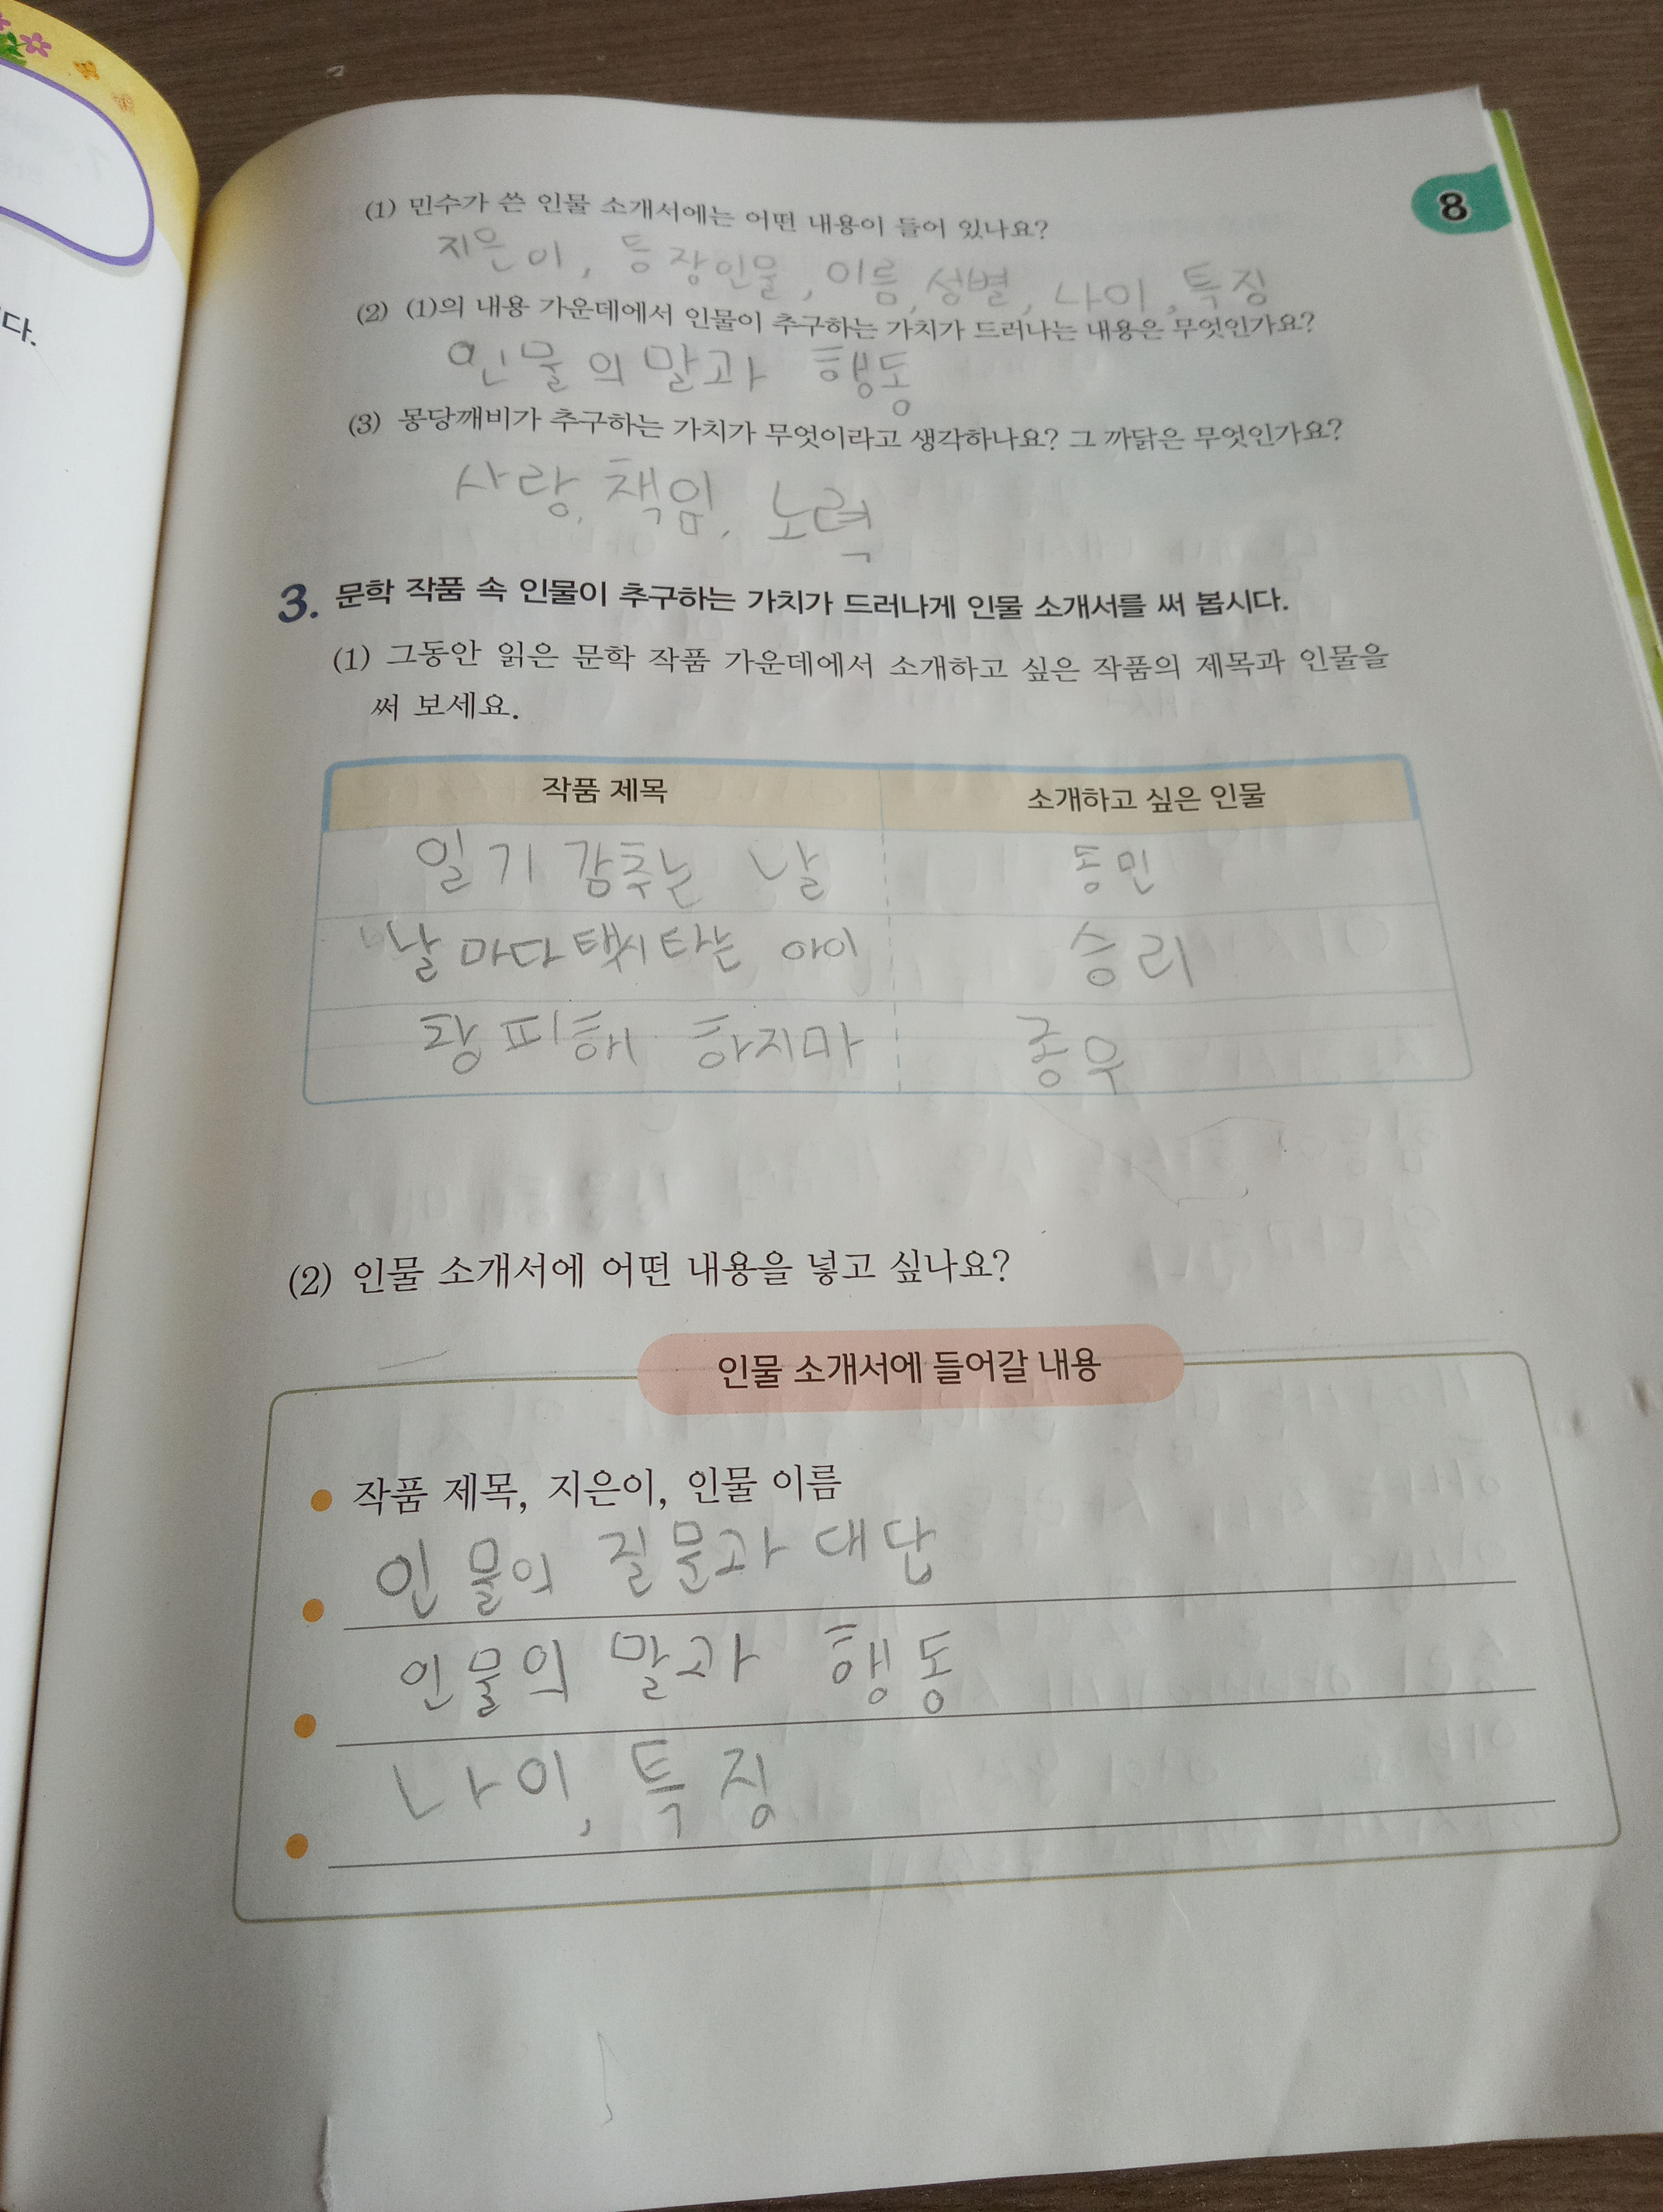 다.
8
(1) 민수가 쓴 인물 소개서에는 어떤 내용이 들어 있나요?
지은이, 등장인물, 이름, 성별, 나이, 특징
(2) (1)의 내용 가운데에서 인물이 추구하는 가치가 드러나는 내용은 무엇인가요?
인물의 말과 행동
(3) 몽당깨비가 추구하는 가치가 무엇이라고 생각하나요? 그 까닭은 무엇인가요?
사랑, 책임, 노력
3. 문학 작품 속 인물이 추구하는 가치가 드러나게 인물 소개서를 써 봅시다.
(1) 그동안 읽은 문학 작품 가운데에서 소개하고 싶은 작품의 제목과 인물을
써 보세요.
작품 제목 소개하고 싶은 인물
일기 감추는 날 동민
날마다 택시 타는 아이 승리
창피해 하지마 종우
(2) 인물 소개서에 어떤 내용을 넣고 싶나요?
인물 소개서에 들어갈 내용
작품 제목, 지은이, 인물 이름
인물의 질문과 대답
인물의 말과 행동
나이, 특징